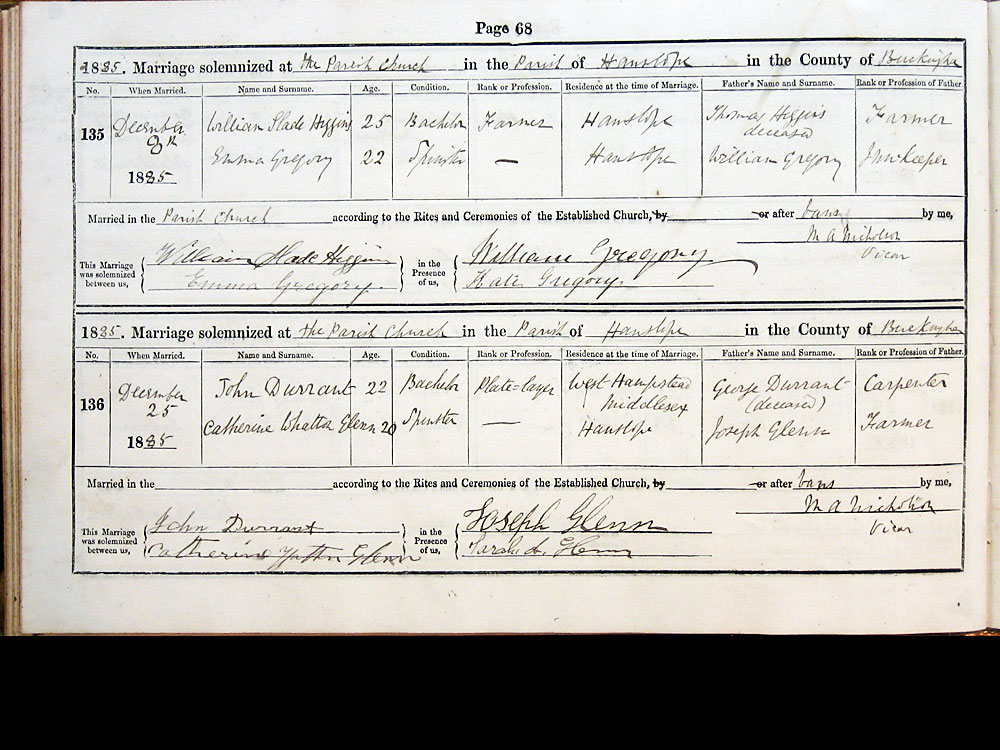 Page 68
1885. Marriage solemnized at the Parish Church in the Parish of Hanslope in the County of Buckingham
No. When Married. Name and Surname. Age. Condition. Rank or Profession. Residence at the time of Marriage. Father's Name and Surname. Rank or Profession of Father
135 December 8th 1885 William Slade Higgins 25 Bachelor Farmer Hanslope Thomas Higgins deceased Farmer
Emma Gregory 22 Spinster — Hanslope William Gregory Innkeeper
Married in the Parish Church according to the Rites and Ceremonies of the Established Church, by or after banns by me,
M A Nicholson
Vicar
This Marriage was solemnized between us, William Slade Higgins in the Presence of us, William Gregory
Emma Gregory Kate Gregory
1885. Marriage solemnized at the Parish Church in the Parish of Hanslope in the County of Buckingham
No. When Married. Name and Surname. Age. Condition. Rank or Profession. Residence at the time of Marriage. Father's Name and Surname. Rank or Profession of Father.
136 December 25 1885 John Durrant 22 Bachelor Plate-layer West Hampstead Middlesex George Durrant (deceased) Carpenter
Catherine Whatton Glenn 20 Spinster — Hanslope Joseph Glenn Farmer
Married in the according to the Rites and Ceremonies of the Established Church, by or after banns by me,
M A Nicholson
Vicar
This Marriage was solemnized between us, John Durrant in the Presence of us, Joseph Glenn
Catherine Glenn Sarah Glenn